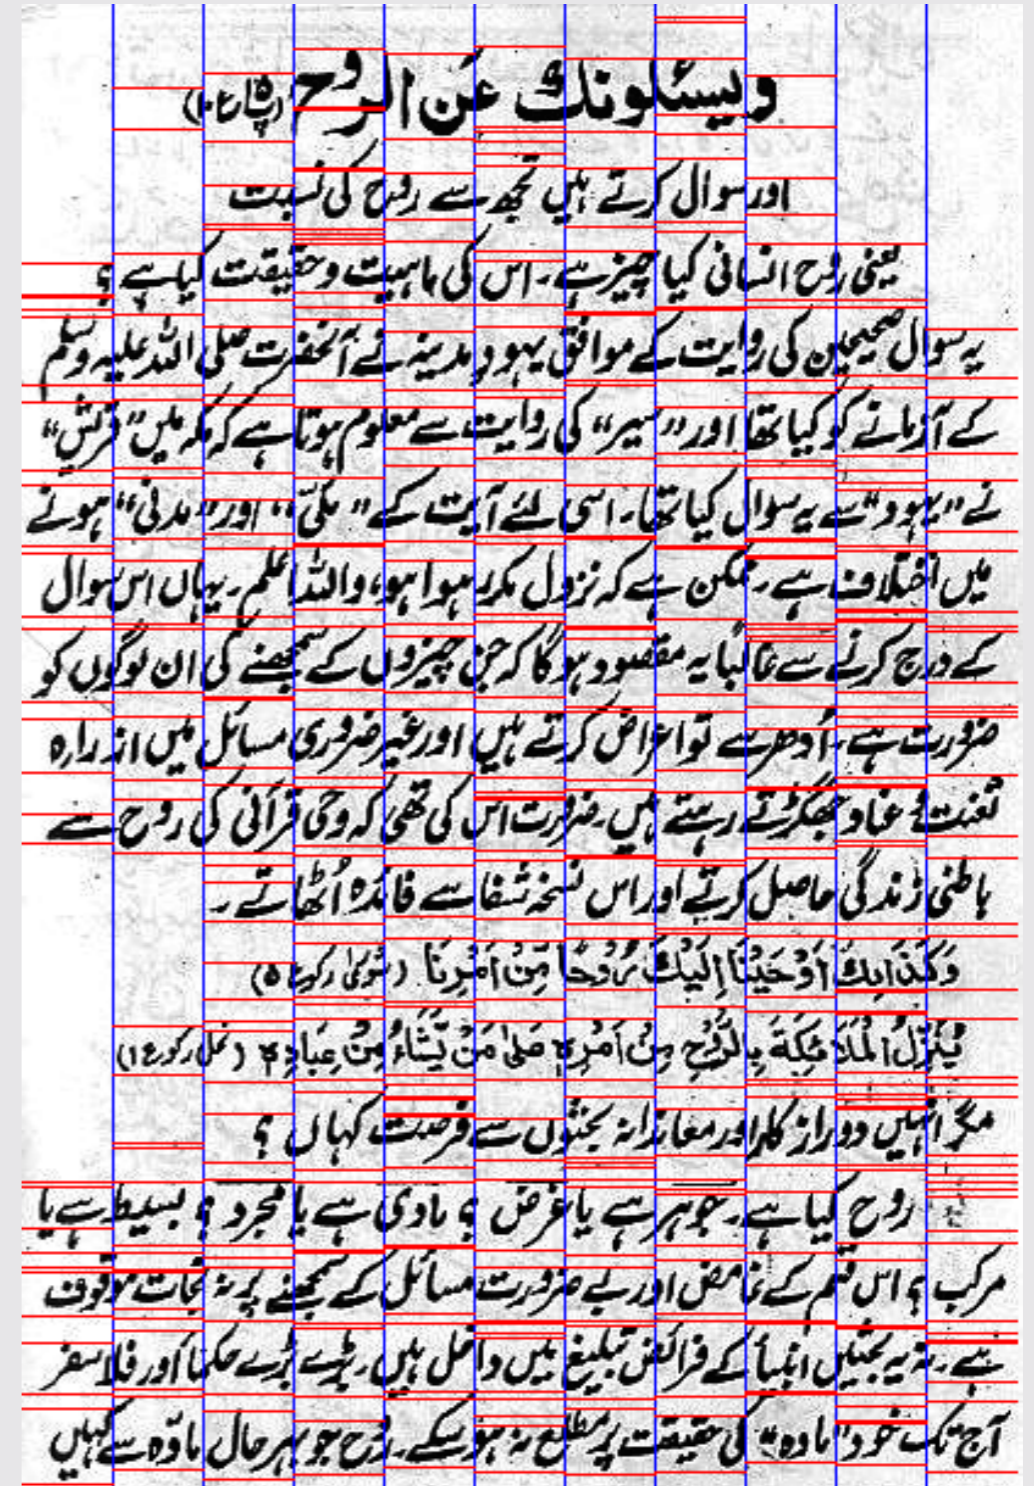 ویسئلونک عن الروح (پ ۱۵ ع ۱۰)
اور سوال کرتے ہیں تجھ سے روح کی نسبت
یعنی روح انسانی کیا چیز ہے۔ اس کی ماہیت و حقیقت کیا ہے ؟
یہ سوال صحیحین کی روایت کے موافق یہود مدینہ نے آنحضرت صلی اللہ علیہ وسلم
کے آزمانے کو کیا تھا اور "سیر" کی روایت سے معلوم ہوتا ہے کہ مکہ میں "قریش"
نے "یہود" سے یہ سوال کیا تھا۔ اسی لئے آیت کے "مکی" اور "مدنی" ہونے
میں اختلاف ہے۔ ممکن ہے کہ نزول مکرر ہوا ہو، واللہ اعلم۔ یہاں اس سوال
کے درج کرنے سے غالباً یہ مقصود ہوگا کہ جن چیزوں کے سمجھنے کی ان لوگوں کو
ضرورت ہے۔ اُدھر سے تو اعراض کرتے ہیں اور غیر ضروری مسائل میں از راہ
تعنت و عناد جھگڑتے رہتے ہیں۔ ضرورت اس کی تھی کہ وحی قرآنی کی روح سے
باطنی زندگی حاصل کرتے اور اس نسخہ شفا سے فائدہ اُٹھاتے۔
وَكَذَالِكَ اَوْحَيْنَا اِلَيْكَ رُوْحًا مِّنْ اَمْرِنَا (شوریٰ رکوع ۵)
يُنَزِّلُ الْمَلَائِكَةَ بِالرُّوْحِ مِنْ اَمْرِهٖ عَلٰى مَنْ يَّشَاءُ مِنْ عِبَادِهٖ (نحل رکوع ۱)
مگر انہیں دور از کار اور معاندانہ بحثوں سے فرصت کہاں ؟
روح کیا ہے۔ جوہر ہے یا عرض ؟ مادی ہے یا مجرد ؟ بسیط ہے یا
مرکب ؟ اس قسم کے غامض اور بے ضرورت مسائل کے سمجھنے پر نہ نجات موقوف
ہے۔ نہ یہ بحثیں انبیأ کے فرائض تبلیغ میں داخل ہیں۔ بڑے بڑے حکما اور فلاسفر
آج تک خود "مادہ" کی حقیقت پر مطلع نہ ہو سکے۔ روح جو بہرحال مادّہ سے کہیں